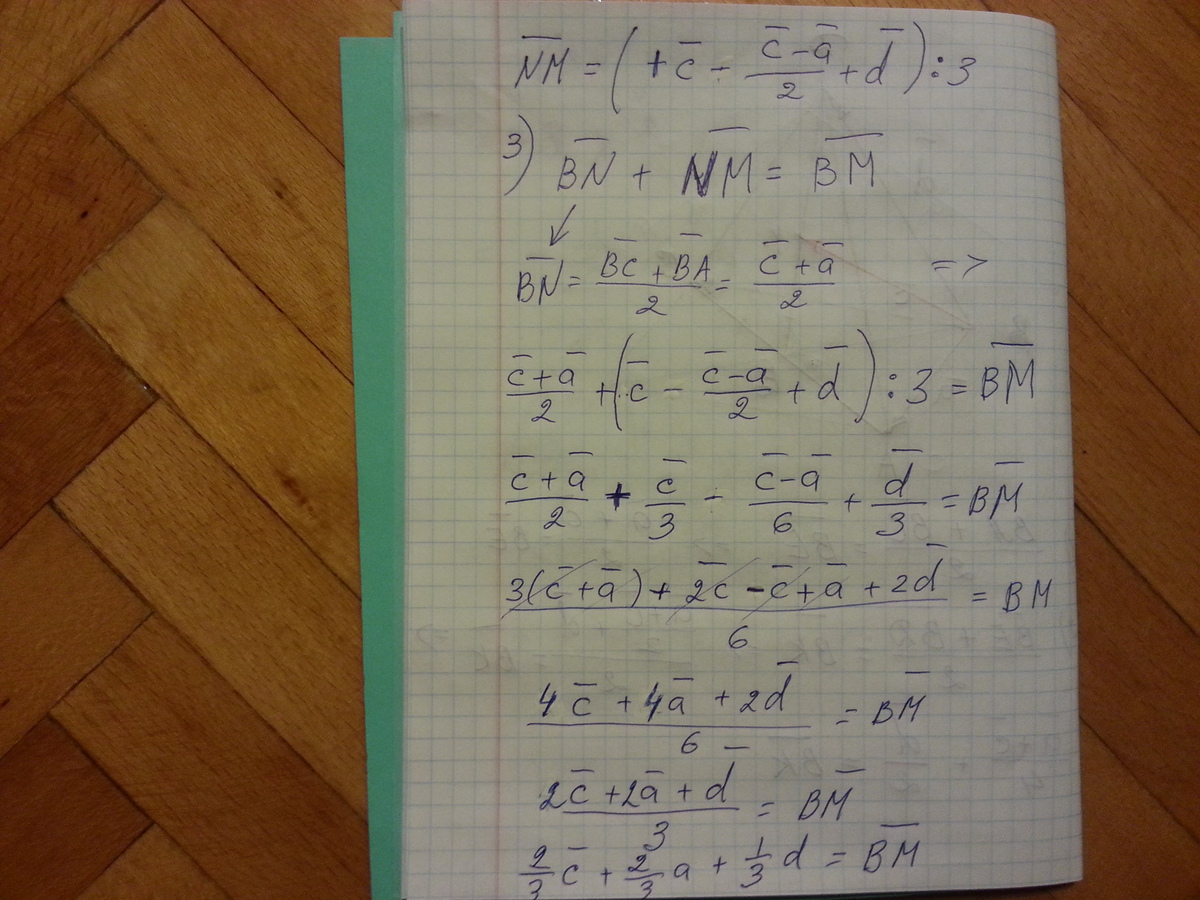 N̅M̅ = ( + c̅ - (c̅ - a̅)/2 + d̅ ) : 3
3) B̅N̅ + N̅M̅ = B̅M̅
B̅N̅ = (B̅C̅ + B̅A̅)/2 = (c̅ + a̅)/2 =>
(c̅ + a̅)/2 + ( c̅ - (c̅ - a̅)/2 + d̅ ) : 3 = B̅M̅
(c̅ + a̅)/2 + c̅/3 - (c̅ - a̅)/6 + d̅/3 = B̅M̅
(3(c̅ + a̅) + 2c̅ - c̅ + a̅ + 2d̅)/6 = BM
(4c̅ + 4a̅ + 2d̅)/6 = B̅M̅
(2c̅ + 2a̅ + d̅)/3 = B̅M̅
2/3 c̅ + 2/3 a + 1/3 d = B̅M̅